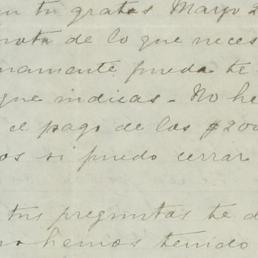 en tu grata Mayo 2
nota de lo que neces
namente pueda te
que indicas. No he
el pago de los $200
os si puedo cerrar
tus preguntas te d
no hemos tenido